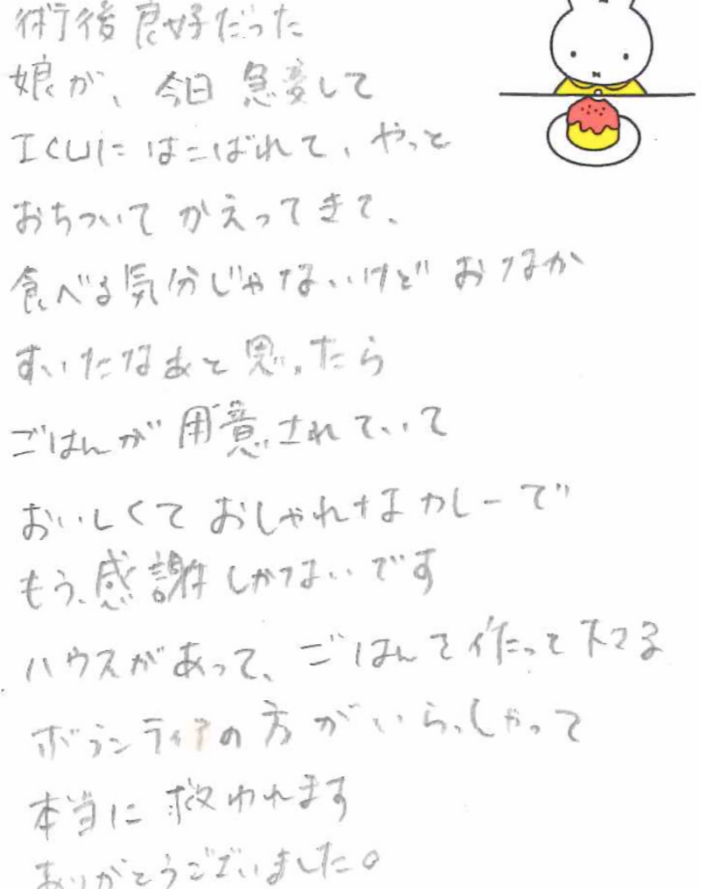 術後良好だった
娘が、今日急変して
ICUにはこばれて、やっと
おちついてかえってきて、
食べる気分じゃないけど おなか
すいたなぁと思ったら
ごはんが用意されていて
おいしくておしゃれなカレーで
もう、感謝しかないです
ハウスがあって、ごはんを作って下さる
ボランティアの方がいらっしゃって
本当に救われます
ありがとうございました。